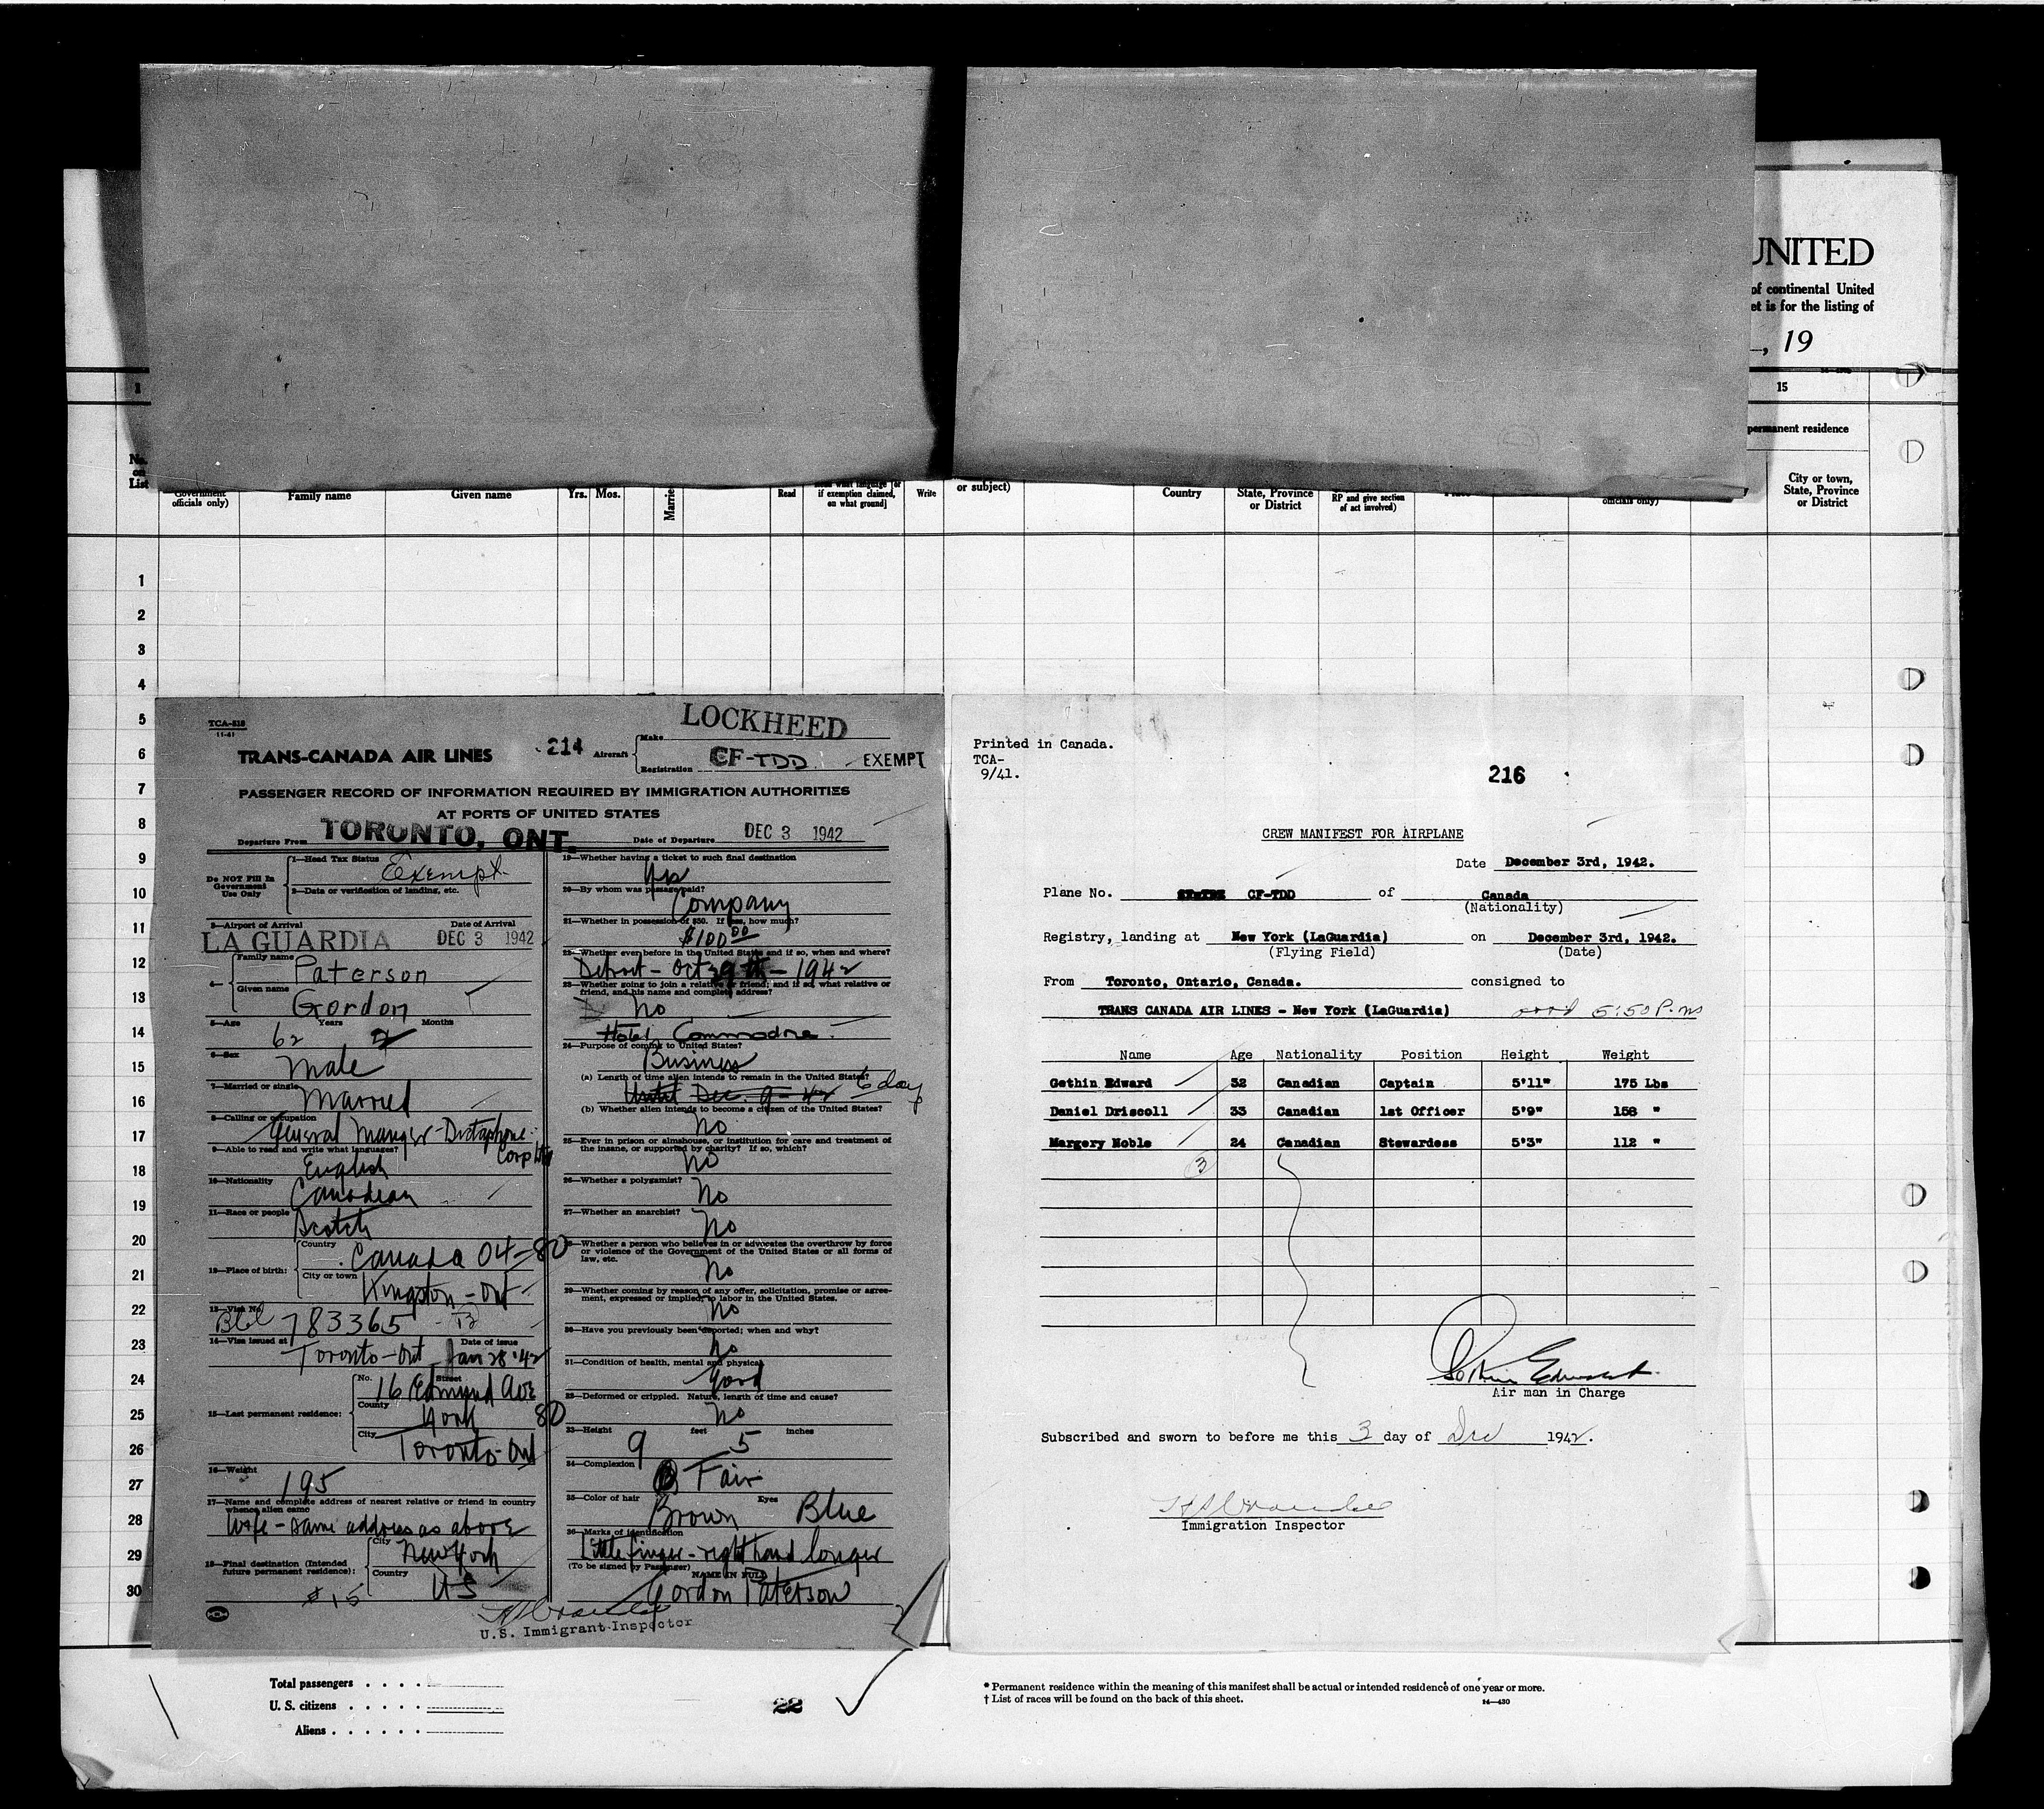 UNITED
of continental United
et is for the listing of
, 19
1
15
permanent residence
No.
on
List
Government
officials only)
Family name
Given name
Yrs. Mos.
Read
if exemption claimed,
on what ground]
Write
or subject)
Country
State, Province
or District
RP and give section
of act involved)
officials only)
City or town,
State, Province
or District
1
2
3
4
5
6
7
8
9
10
11
12
13
14
15
16
17
18
19
20
21
22
23
24
25
26
27
28
29
30
TCA-518
11-41
LOCKHEED
TRANS-CANADA AIR LINES
214
Aircraft
Make
Registration CF-TDD
EXEMPT
PASSENGER RECORD OF INFORMATION REQUIRED BY IMMIGRATION AUTHORITIES
AT PORTS OF UNITED STATES
Departure From TORONTO, ONT. Date of Departure DEC 3 1942
Do NOT Fill In
Government
Use Only
1—Head Tax Status Exempt
2—Data or verification of landing, etc.
3—Airport of Arrival Date of Arrival
LA GUARDIA DEC 3 1942
4— Family name Paterson
Given name Gordon
5—Age 62 Years 2 Months
6—Sex Male
7—Married or single Married
8—Calling or occupation
General Manger - Dictaphone
Corp Ltd
9—Able to read and write what languages?
English
10—Nationality Canadian
11—Race or people Scotch
12—Place of birth: Country Canada 04-80
City or town Kingston - Ont
13—Visa No. 783365
14—Visa issued at Date of issue
Toronto - Ont Jan 28 '42
15—Last permanent residence: No. Street 16 Edmund Ave
County York 80
City Toronto - Ont
16—Weight 195
17—Name and complete address of nearest relative or friend in country
whence alien came
Wife - same address as above
18—Final destination (Intended
future permanent residence):
City New York
Country US
$15
19—Whether having a ticket to such final destination
Yes
20—By whom was passage paid?
Company
21—Whether in possession of $50. If less, how much?
$100.00
22—Whether ever before in the United States and if so, when and where?
Detroit - Oct 29th - 1942
23—Whether going to join a relative or friend; and if so, what relative or
friend, and his name and complete address?
No
Hotel Commodore
24—Purpose of coming to United States?
Business
(a) Length of time alien intends to remain in the United States?
Until Dec. 9 - 42 6 days
(b) Whether alien intends to become a citizen of the United States?
No
25—Ever in prison or almshouse, or institution for care and treatment of
the insane, or supported by charity? If so, which?
No
26—Whether a polygamist? No
27—Whether an anarchist? No
28—Whether a person who believes in or advocates the overthrow by force
or violence of the Government of the United States or all forms of
law, etc.
No
29—Whether coming by reason of any offer, solicitation, promise or agree-
ment, expressed or implied, to labor in the United States.
No
30—Have you previously been deported; when and why?
No
31—Condition of health, mental and physical
Good
32—Deformed or crippled. Nature, length of time and cause?
No
33—Height 9 feet 5 inches
34—Complexion Fair
35—Color of hair Brown Eyes Blue
36—Marks of identification
Little finger - right hand longer
(To be signed by Passenger) NAME IN FULL
Gordon Paterson
U.S. Immigrant Inspector
Printed in Canada.
TCA-
9/41.
216
CREW MANIFEST FOR AIRPLANE
Date December 3rd, 1942.
Plane No. CF-TDD of Canada
(Nationality)
Registry, landing at New York (LaGuardia) on December 3rd, 1942.
(Flying Field) (Date)
From Toronto, Ontario, Canada. consigned to
TRANS CANADA AIR LINES - New York (LaGuardia) arrd 5:50 P.m
Name Age Nationality Position Height Weight
Gethin Edward 32 Canadian Captain 5'11" 175 Lbs
Daniel Driscoll 33 Canadian 1st Officer 5'9" 158 "
Margery Noble 24 Canadian Stewardess 5'3" 112 "
3
Air man in Charge
Subscribed and sworn to before me this 3 day of Dec 1942.
Immigration Inspector
Total passengers
U. S. citizens
Aliens
22
* Permanent residence within the meaning of this manifest shall be actual or intended residence of one year or more.
† List of races will be found on the back of this sheet.
14—430